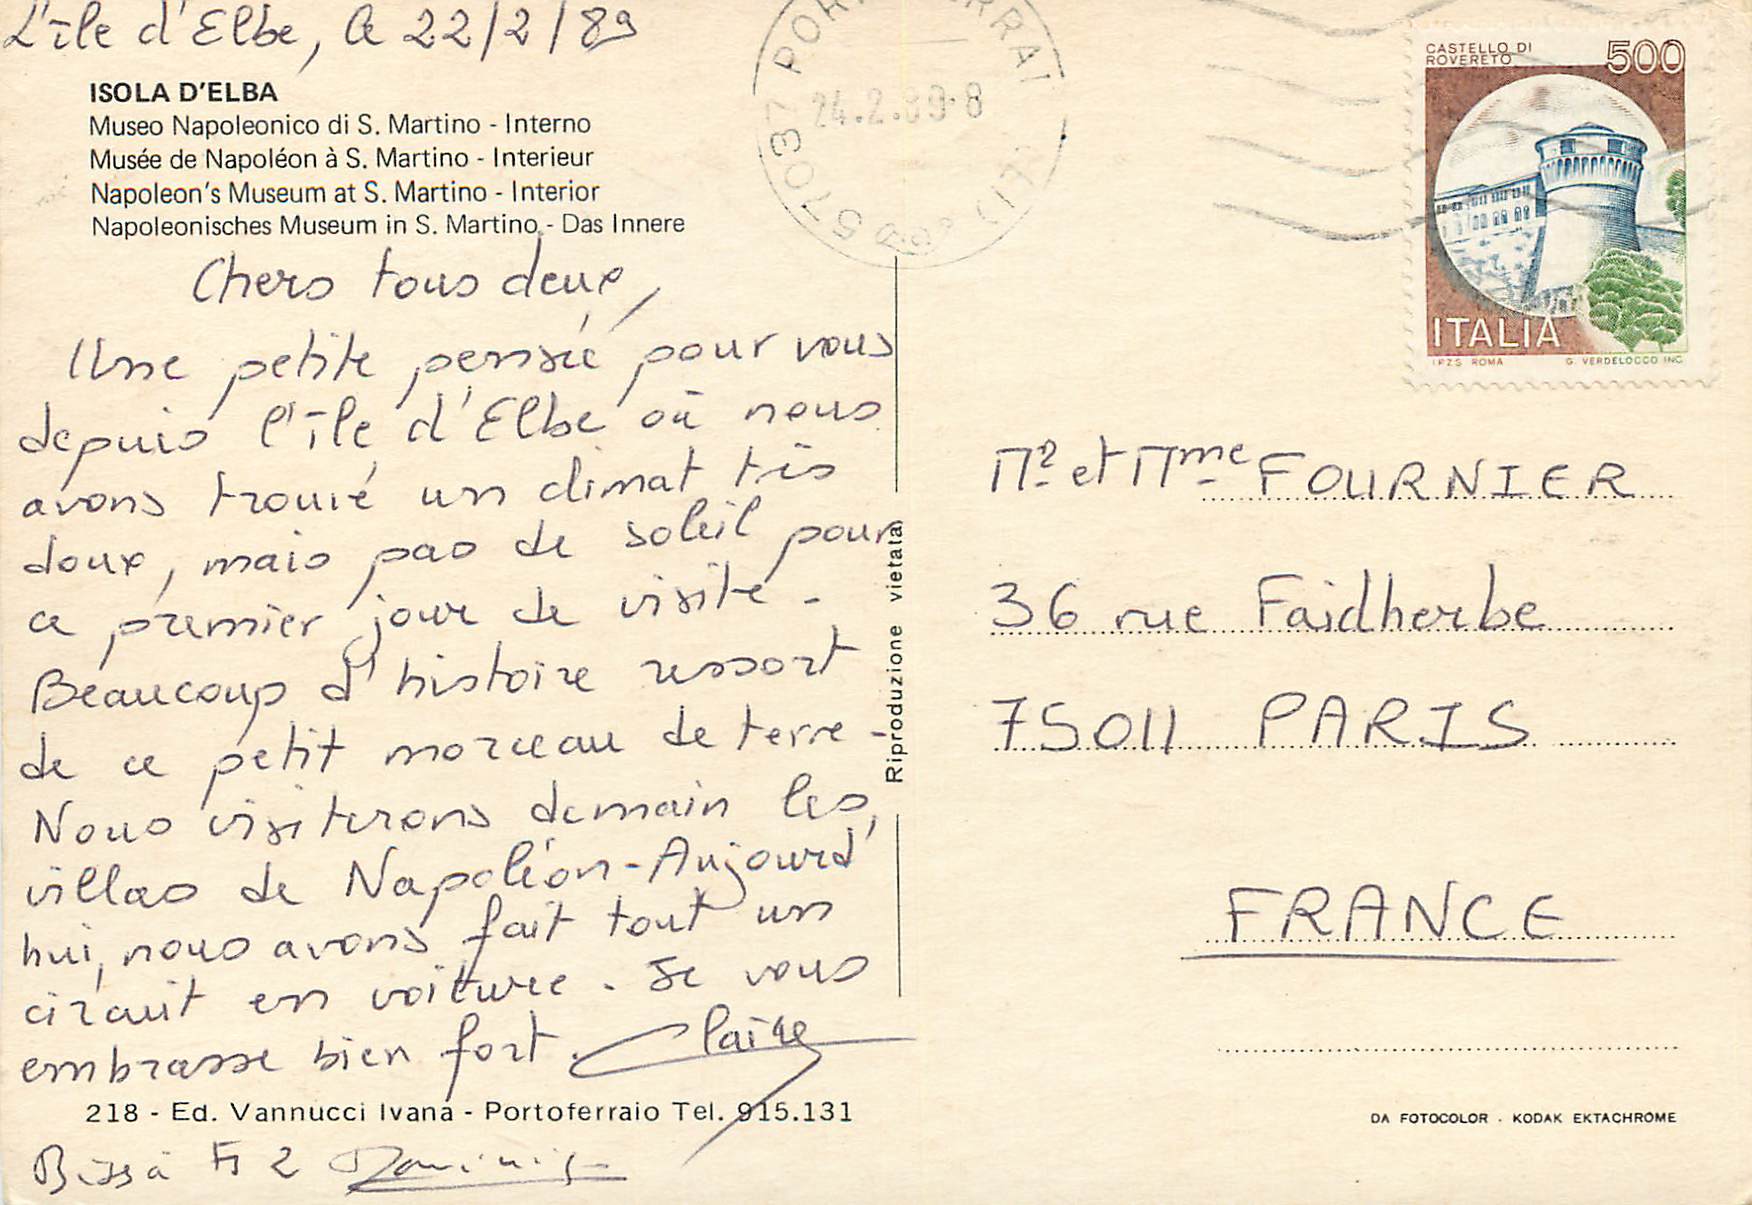 L'île d'Elbe, le 22/2/89
ISOLA D'ELBA
Museo Napoleonico di S. Martino - Interno
Musée de Napoléon à S. Martino - Interieur
Napoleon's Museum at S. Martino - Interior
Napoleonisches Museum in S. Martino - Das Innere
Chers tous deux,
Une petite pensée pour vous
depuis l'île d'Elbe où nous
avons trouvé un climat très
doux, mais pas de soleil pour
ce premier jour de visite -
Beaucoup d'histoire ressort
de ce petit morceau de terre -
Nous visiterons demain les
villas de Napoléon - Aujourd'
hui, nous avons fait tout un
circuit en voiture. Je vous
embrasse bien fort. Claire
218 - Ed. Vannucci Ivana - Portoferraio Tel. 915.131
2
Riproduzione vietata
57037
24.2.89-8
CASTELLO DI
ROVERETO
500
ITALIA
I.P.Z.S. ROMA G. VERDELOCCO INC.
Mr et Mme FOURNIER
36 rue Faidherbe
75011 PARIS
FRANCE
DA FOTOCOLOR - KODAK EKTACHROME